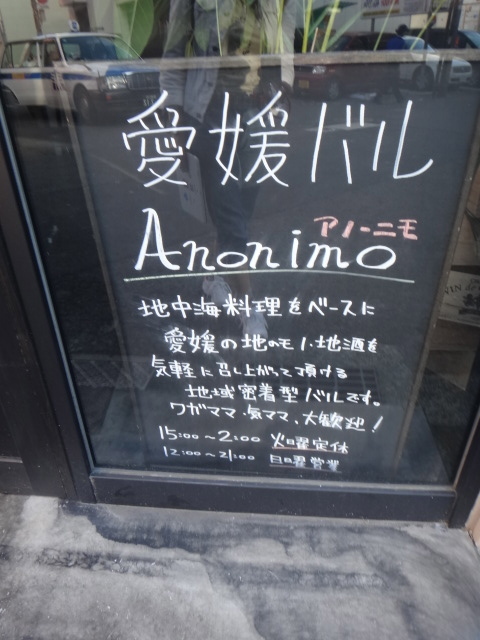 愛媛バル
アノーニモ
Anonimo
地中海料理をベースに
愛媛の地のモノ、地酒を
気軽に召し上がって頂ける
地域密着型バルです。
ワガママ、気ママ、大歓迎!
15:00~2:00 火曜定休
12:00~21:00 日曜営業